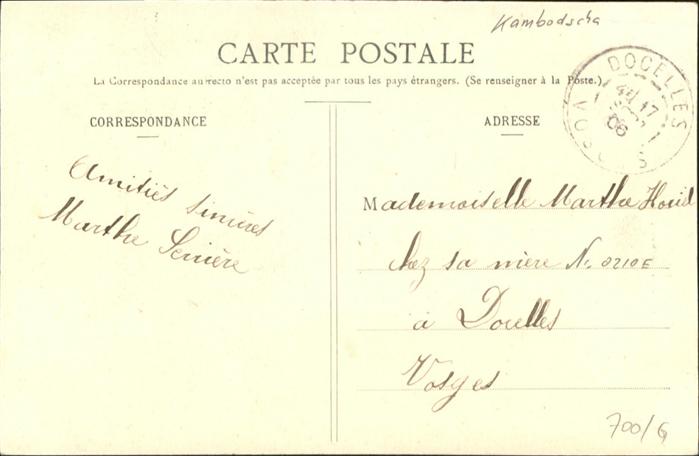 Kambodscha
CARTE POSTALE
La Correspondance au recto n'est pas acceptée par tous les pays étrangers. (Se renseigner à la Poste.)
DOCELLES
VOSGES
17
06
CORRESPONDANCE
ADRESSE
Amitiés sincères
Marthe
Mademoiselle Marthe
chez sa mère No 0210E
à Docelles
Vosges
700/G